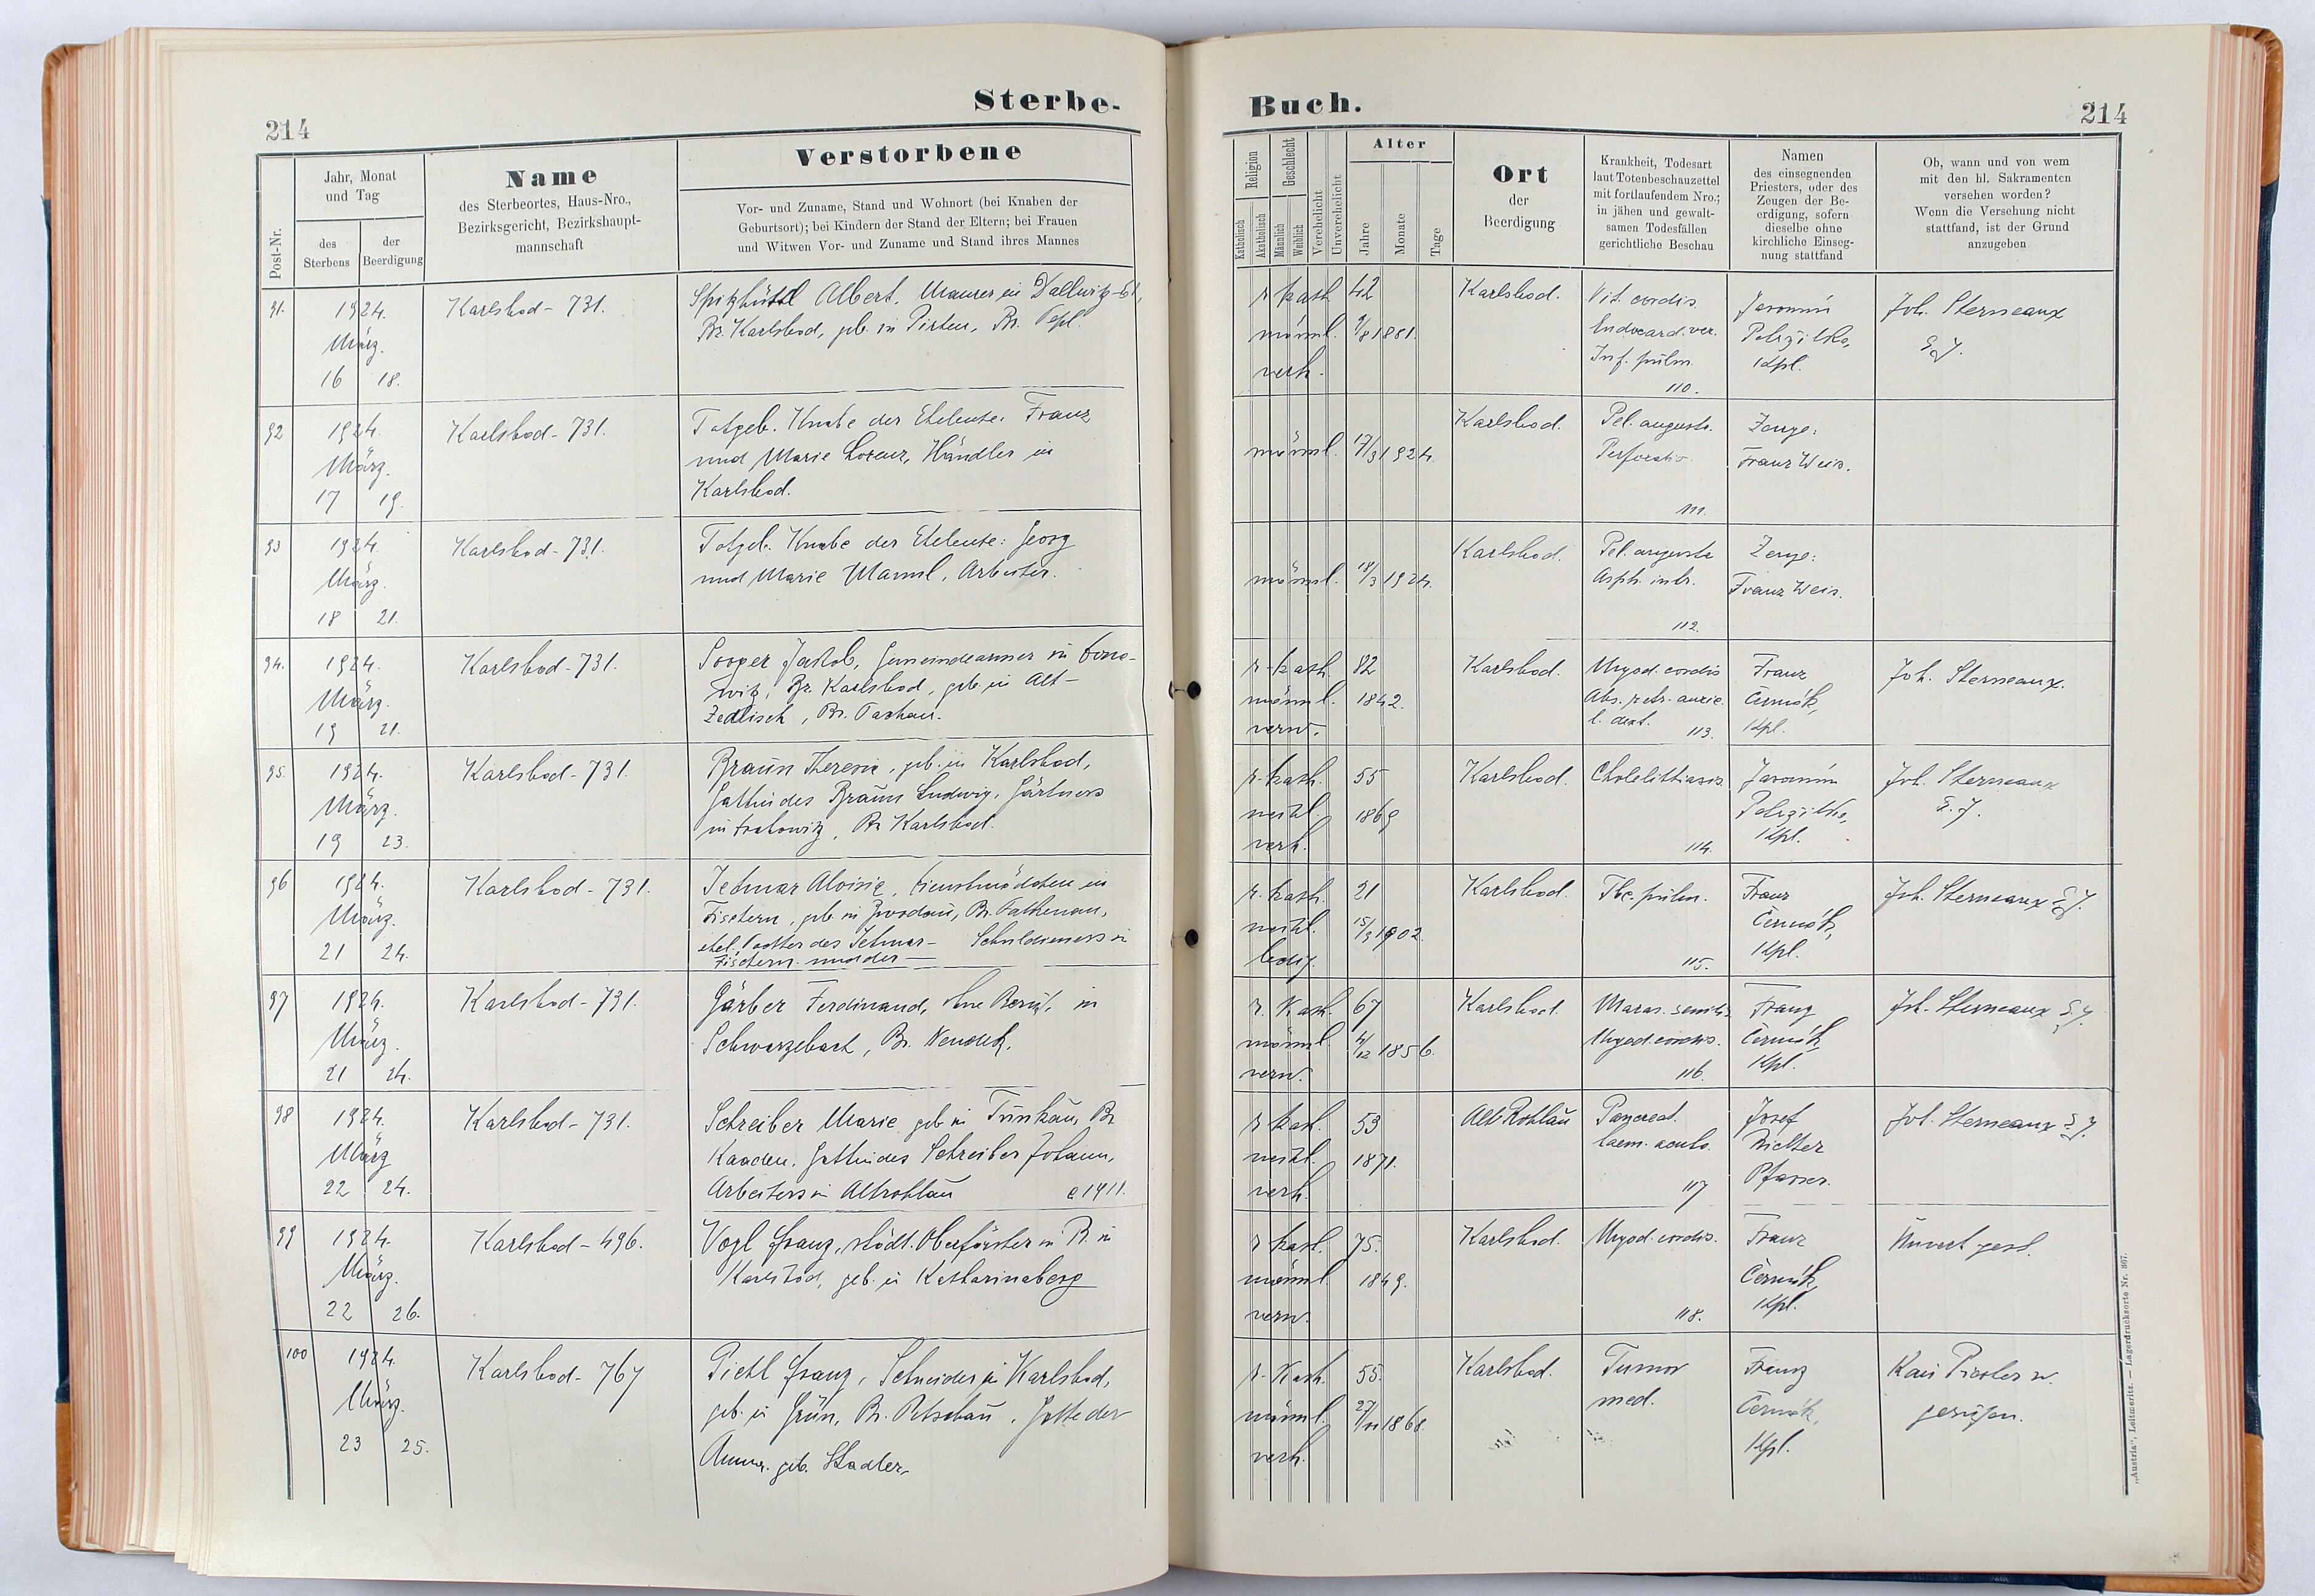 Sterbe-
Buch.
214
214
Post-Nr.
Jahr, Monat
und Tag
des
Sterbens
der
Beerdigung
Name
des Sterbeortes, Haus-Nro.,
Bezirksgericht, Bezirkshaupt-
mannschaft
Verstorbene
Vor- und Zuname, Stand und Wohnort (bei Knaben der
Geburtsort); bei Kindern der Stand der Eltern; bei Frauen
und Witwen Vor- und Zuname und Stand ihres Mannes
Religion
Katholisch
Akatholisch
Geschlecht
Männlich
Weiblich
Verehelicht
Unverehelicht
Alter
Jahre
Monate
Tage
Ort
der
Beerdigung
Krankheit, Todesart
laut Totenbeschauzettel
mit fortlaufendem Nro.;
in jähen und gewalt-
samen Todesfällen
gerichtliche Beschau
Namen
des einsegnenden
Priesters, oder des
Zeugen der Be-
erdigung, sofern
dieselbe ohne
kirchliche Einseg-
nung stattfand
Ob, wann und von wem
mit den hl. Sakramenten
versehen worden?
Wenn die Versehung nicht
stattfand, ist der Grund
anzugeben
91.
1924.
März.
16 18.
Karlsbad - 731.
Albert, Maurer in Dallwitz
Bz. Karlsbad, geb. in Pirten, Bz. Tepl.
r kath 42
männl. 9/8 1881.
verh.
Karlsbad.
Vit. cordis.
Endocard. ver.
Inf. pulm.
110.
Jaromir
Kpl.
Joh. Sterneaux
S. J.
92
1924.
März.
17 19.
Karlsbad - 731.
Totgeb. Knabe der Eheleute: Franz
und Marie Lorenz, Händler in
Karlsbad.
männl. 17/3 1924.
Karlsbad.
Pel. angusta.
Perforatio
111.
Zeuge:
Franz Weis.
93
1924.
März.
18 21.
Karlsbad - 731.
Totgeb. Knabe der Eheleute: Georg
und Marie Mannl, Arbeiter.
männl. 18/3 1924.
Karlsbad.
Pel. angusta
Asph. intr.
112.
Zeuge:
Franz Weis.
94.
1924.
März.
19 21.
Karlsbad - 731.
Jakob, Gemeindearmer in Dono-
witz, Bz. Karlsbad, geb. in Alt-
Zedlisch, Bz. Tachau.
r-kath. 82
männl. 1842.
verw.
Karlsbad.
Myod. cordis
Abs. retr. auric.
l. dext.
113.
Franz
Čermák,
Kpl.
Joh. Sterneaux.
95.
1924.
März.
19 23.
Karlsbad - 731.
Braun Theresia, geb. in Karlsbad,
Gattin des Braun Ludwig, Gärtners
in Drahowitz, Bz. Karlsbad.
r. kath. 55
weibl. 1869
verh.
Karlsbad.
Cholelithiasis.
114.
Jaromir
Kpl.
Joh. Sterneaux
S. J.
96
1924.
März.
21 24.
Karlsbad - 731.
Jetmar Aloisia, Dienstmädchen in
Fischern, geb. in Zwodau, Bz. Falkenau,
ehel. Tochter des Jetmar - Schuldieners in
Fischern und der —
r. kath. 21
weibl. 15/3 1902.
ledig.
Karlsbad.
Tbc. pulm.
115.
Franz
Čermák,
Kpl.
Joh. Sterneaux S. J.
97
1924.
März.
21 24.
Karlsbad - 731.
Gärber Ferdinand, ohne Beruf, in
Schwarzebach, Bz. Neudek.
r. kath. 67
männl. 4/12 1856.
verw.
Karlsbad.
Maras. senilis
Myod. cordis.
116.
Franz
Čermák,
Kpl.
Joh. Sterneaux S. J.
98
1924.
März
22 24.
Karlsbad - 731.
Schreiber Marie geb. in Tunkau, Bz.
Kaaden, Gattin des Schreiber Johann,
Arbeiters in Altrohlau
r kath. 53
weibl. 1871.
verh.
Alt Rohlau
Pancreat.
haem. acuta.
117
Josef
Richter
Pfarrer.
Joh. Sterneaux S. J.
99
1924.
März.
22 26.
Karlsbad - 496.
Vogl Franz, städt. Oberförster in R. in
Karlsbad, geb. in Katharinaberg
r. kath. 75.
männl. 1849.
verw.
Karlsbad.
Myod. cordis.
118.
Franz
Čermák,
Kpl.
100
1924.
März.
23 25.
Karlsbad - 767
Pichl Franz, Schneider in Karlsbad,
geb. in Grün, Bz. Petschau, Gatte der
Anna, geb. Stadler,
r. kath. 55.
männl. 27/11 1868.
verh.
Karlsbad.
Tumor
med.
Franz
Čermák,
Kpl.
Kein Priester w.
gerufen.
„Austria“, Leitmeritz. — Lagerdrucksorte Nr. 367.